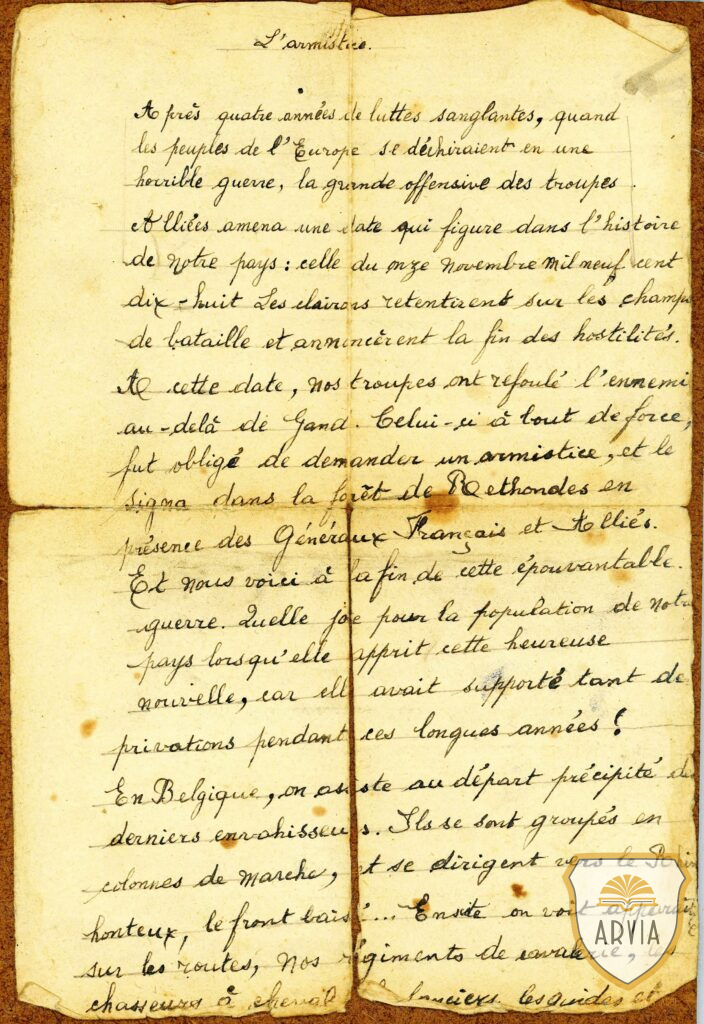 L'armistice.
Après quatre années de luttes sanglantes, quand
les peuples de l'Europe se déchiraient en une
horrible guerre, la grande offensive des troupes
Alliées amena une date qui figure dans l'histoire
de notre pays : celle du onze novembre mil neuf cent
dix-huit Les clairons retentirent sur les champs
de bataille et annoncèrent la fin des hostilités.
A cette date, nos troupes ont refoulé l'ennemi
au-delà de Gand. Celui-ci à bout de force,
fut obligé de demander un armistice, et le
signa dans la forêt de Rethondes en
présence des Généraux Français et Alliés.
Et nous voici à la fin de cette épouvantable
guerre. Quelle joie pour la population de notre
pays lorsqu'elle apprit cette heureuse
nouvelle, car elle avait supporté tant de
privations pendant ces longues années !
En Belgique, on assiste au départ précipité des
derniers envahisseurs. Ils se sont groupés en
colonnes de marche, et se dirigent vers le Rhin
honteux, le front baissé... Ensite on voit
sur les routes, nos régiments de cavalerie, les
chasseurs à cheval lanciers, les guides et
ARVIA